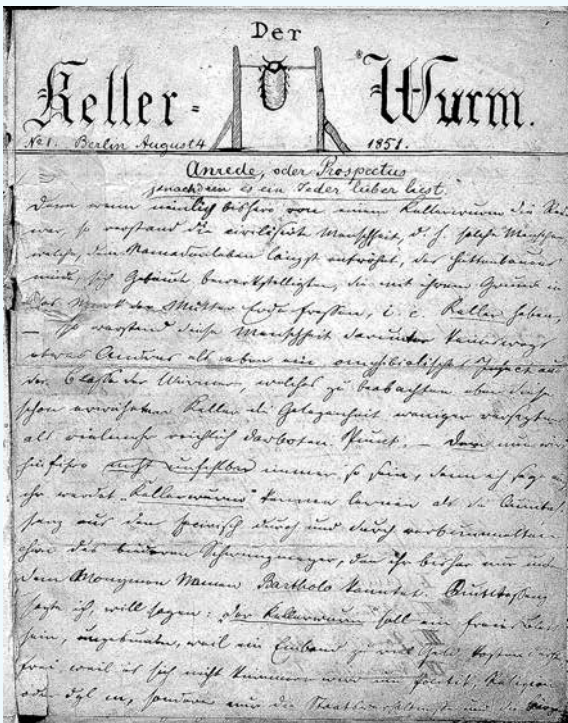 Der
Keller-Wurm.
No 1. Berlin August 4 1851.
Anrede, oder Prospectus
jenachdem es ein Jeder lieber liest.
Denn wenn nämlich bishero von einem Kellerwurm die Rede
war, so verstand die civilisirte Menschheit, d. h. solche Menschen
welche, dem Nomadenleben längst entwöhnt, des Hüttenbauens
müde, sich Gebäude bewerkstelligten, die mit ihrem Grund in
das Mark der Mutter Erde fressen, i. e. Keller haben,
— so verstand diese Menschheit darunter keineswegs
etwas Anderes als eben ein amphibialisches Insect aus
der Classe der Würmer, welches zu beobachten eben diese
schon erwähnten Keller die Gelegenheit weniger versagten
als vielmehr reichlich darboten. — nun wird
hinfüro nicht unfehlbar immer so sein, denn ich sage euch,
ihr werdet "Kellerwurm" kennen lernen als die
aus dem durch und durch
des biederen, den ihr bisher nur unter
dem Namen Bartholo kanntet.
sagte ich, will sagen: der Kellerwurm soll ein freies Blatt
sein, ungebunden, weil ein Einband zu viel Geld kosten
frei weil es sich nicht kümmern wird um Politik, Religion
oder dgl m, sondern nur die Staatsverhältnisse und die